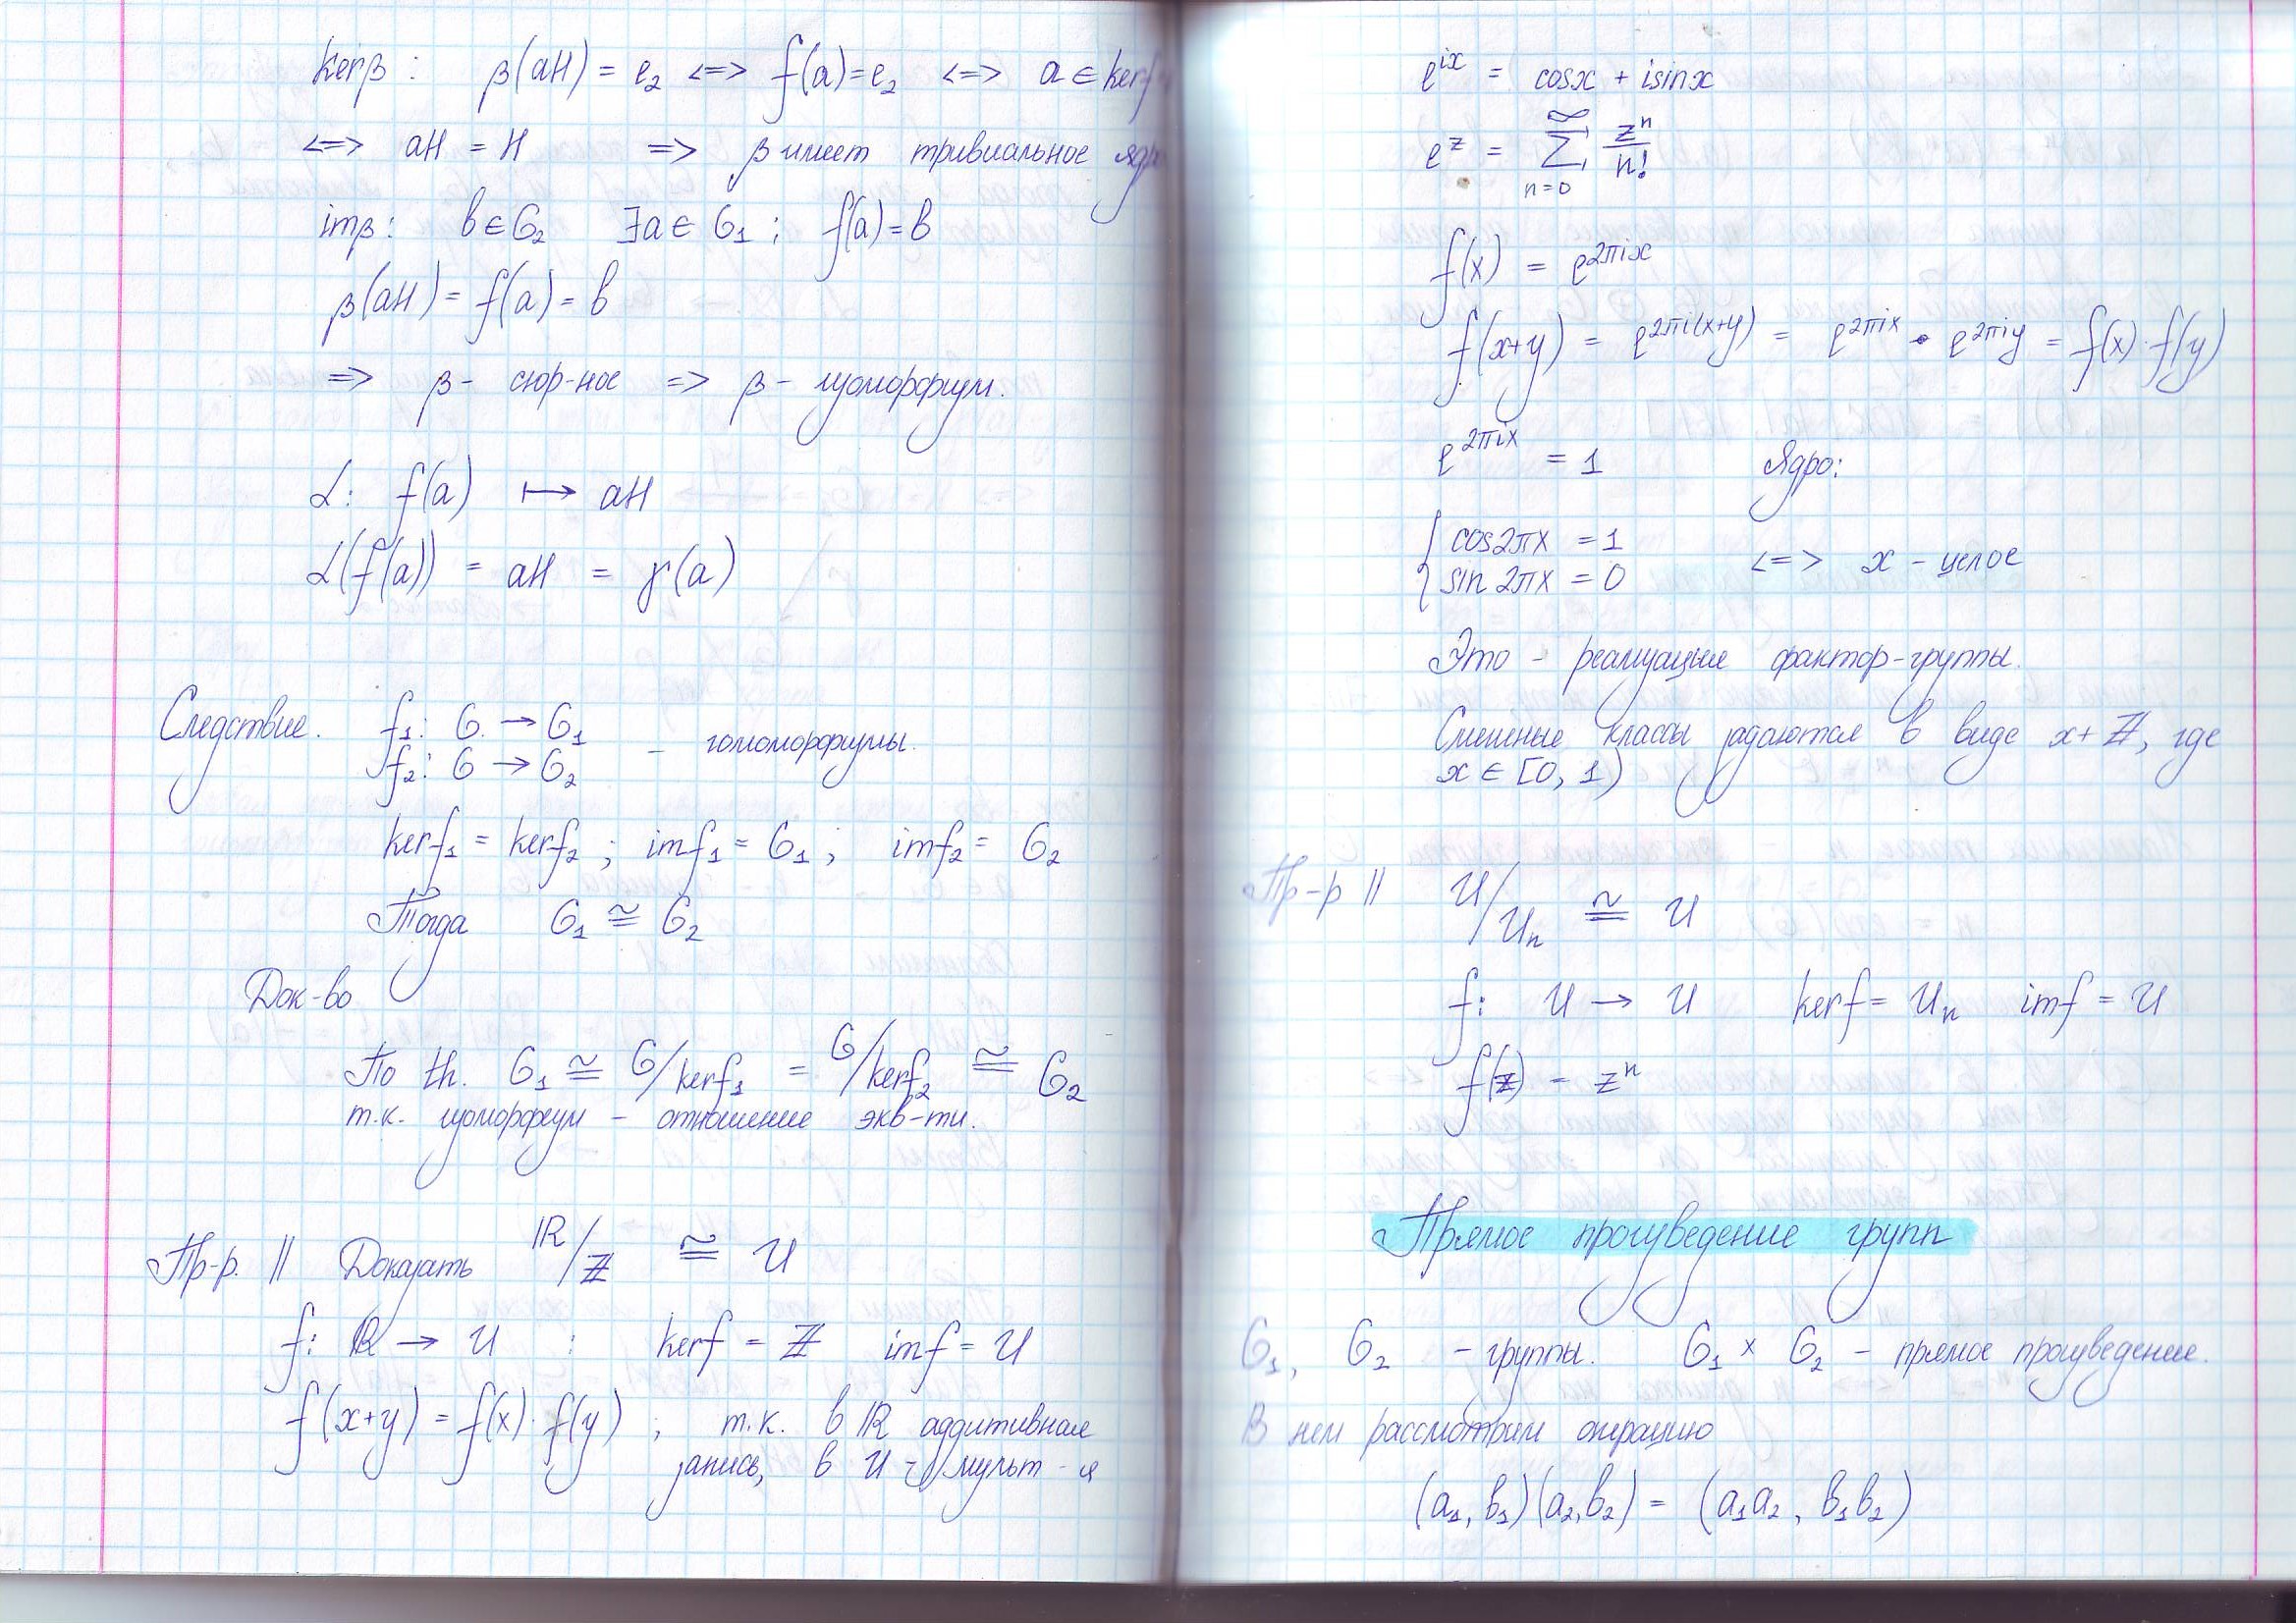 kerβ : β(aH) = e₂ <=> f(a)=e₂ <=> a ∈ kerf
<=> aH = H => β имеет тривиальное ядро
imβ: b∈G₂ ∃a∈ G₁ ; f(a)=b
β(aH) = f(a) = b
=> β - сюр-ное => β - изоморфизм.
α: f(a) ↦ aH
α(f(a)) = aH = γ(a)
Следствие. f₁: G → G₁
f₂: G → G₂ - гомоморфизмы.
kerf₁ = kerf₂ ; imf₁ = G₁ ; imf₂ = G₂
Тогда G₁ ≅ G₂
Док-во
По th. G₁ ≅ G/kerf₁ = G/kerf₂ ≅ G₂
т.к. изоморфизм - отношение экв-ти.
Пр-р. || Доказать ℝ/ℤ ≅ U
f: ℝ → U : kerf = ℤ imf = U
f(x+y) = f(x)·f(y) ; т.к. в ℝ аддитивная
запись, в U - мульт-я
e^{ix} = cosx + isinx
e^z = ∑_{n=0}^{∞} zⁿ/n!
f(x) = e^{2πix}
f(x+y) = e^{2πi(x+y)} = e^{2πix} • e^{2πiy} = f(x)·f(y)
e^{2πix} = 1 Ядро:
{ cos2πx = 1
sin2πx = 0 <=> x - целое
Это - реализация фактор-группы.
Смежные классы задаются в виде x+ ℤ, где
x ∈ [0, 1)
Пр-р || U/Uₙ ≅ U
f: U → U kerf = Uₙ imf = U
f(z) = zⁿ
Прямое произведение групп
G₁, G₂ - группы. G₁ × G₂ - прямое произведение.
В нем рассмотрим операцию
(a₁, b₁)(a₂, b₂) = (a₁a₂ , b₁b₂)